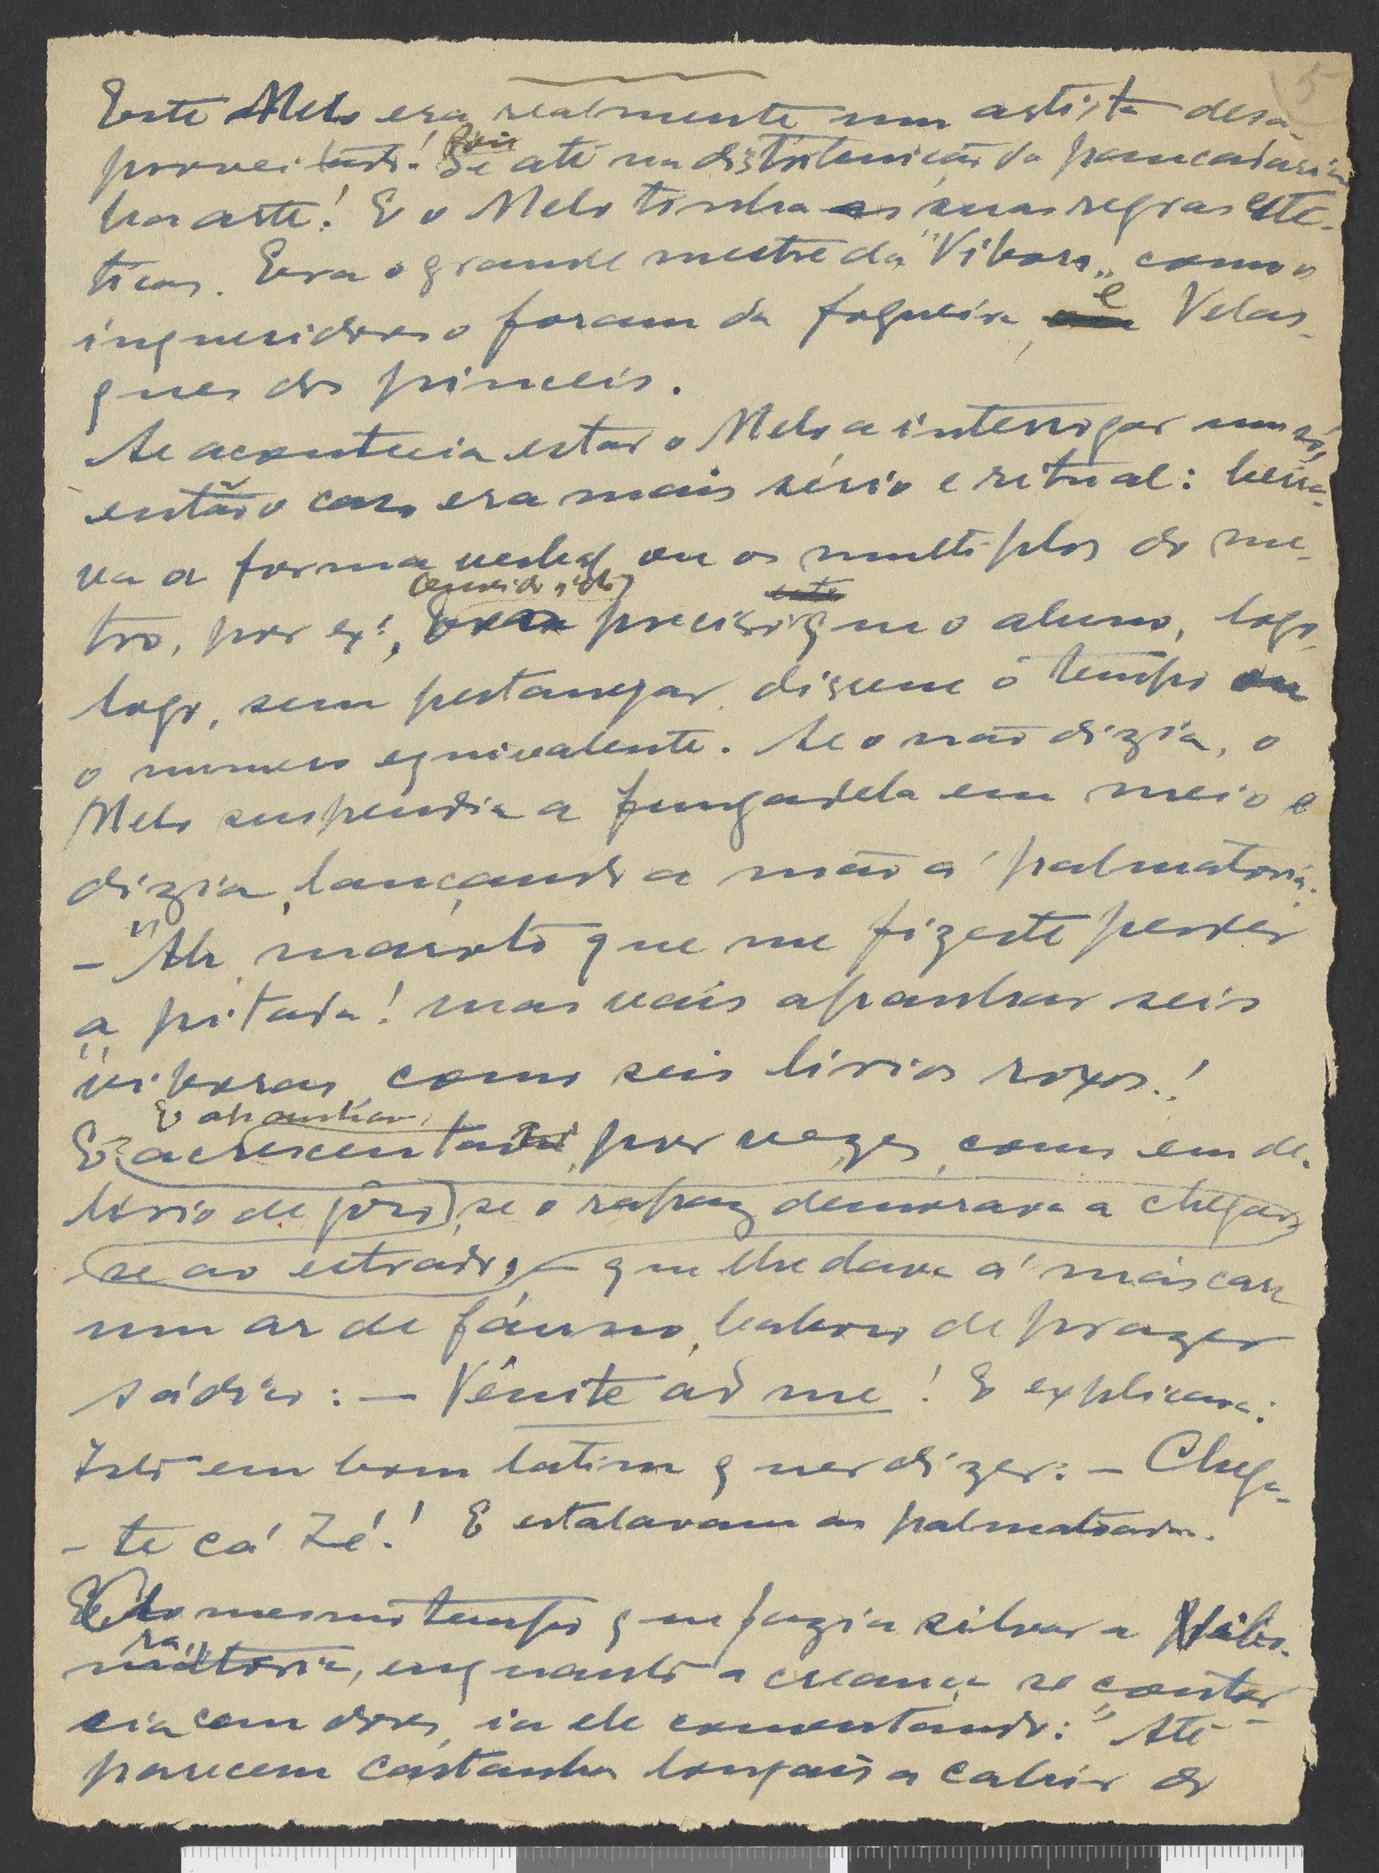 5
Este Melo era realmente um artista desa-
proveitado! Pois Se até na distribuição da pancadaria
há arte! E o Melo tinha as suas regras esté-
ticas. Era o grande mestre da "Vibora" como o
inqueridores o foram da fogueira, e Velas-
ques dos pinceis.
Se acontecia estar o Melo a interrogar um só,
então o caso era mais sério e ritual:
va a forma verbal ou os multiplos do me-
tro, por ex., Era preciso que o aluno, logo,
logo, sem pestanejar, dissesse o tempo ou
o numero equivalente. Se o não dizia, o
Melo suspendia a fungadela em meio e
dizia, lançando a mão á palmatoria:
- "Ah, maroto que me fizeste perder
a pitada! mas vais apanhar seis
"viboras como seis lirios roxos.!
E apanhava.
E acrescentava, por vezes, como em de-
lirio de gôso, se o rapaz demorava a chegar-
se ao estrado, - que lhe dava á máscara
um ar de fáuno, baboso de prazer
sádico: - Vénite ad me! E explicava:
Isto em bom latim quer dizer: - Chega-
- te cá Zé.! E estalavam as palmatoadas.
E Ao mesmo tempo que fazia silvar a Vibo-
ra", matoria, enquanto a creança se contor-
cia com dores, ia ele comentando: "Até
parecem castanhas longais a cahir do